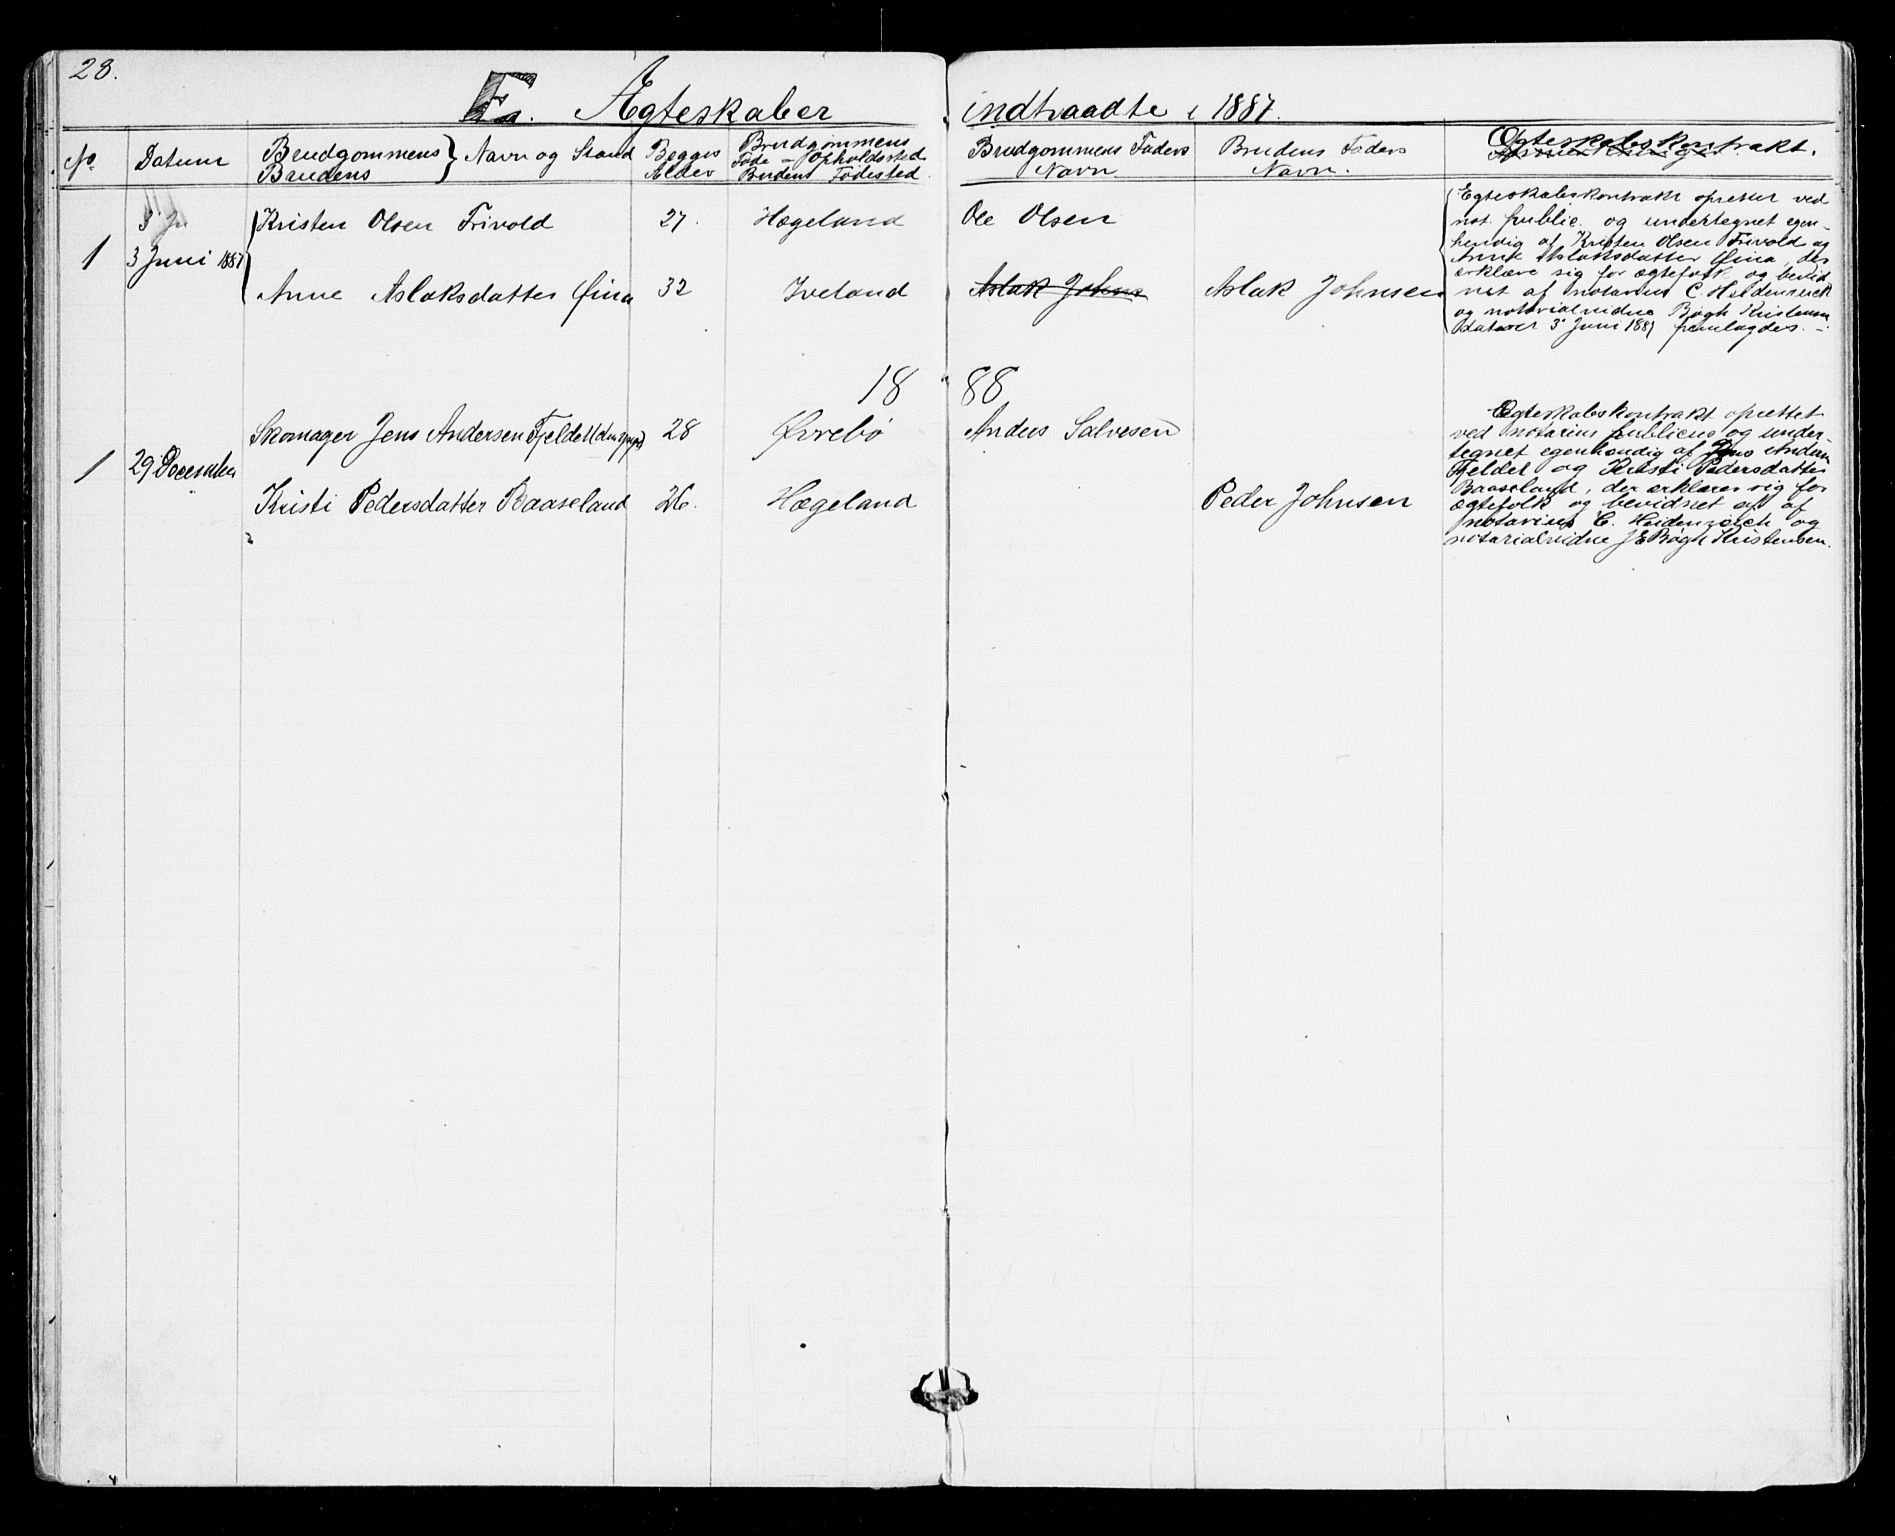 28.
E. Ægteskaber indtraadte i 1887.
No Datum Brudgommens } Navn og Stand Begges Brudgommens Brudgommens Faders Brudens Faders Egteskabskontrakt.
Brudens Alder Føde- Opholdssted Navn. Navn.
Brudens Fødested.
3 Ju Kristen Olsen Frivold 27. Hægeland Ole Olsen
1 3 Juni 1887
Anne Aslaksdatter Øina 32 Iveland Aslak Johns Aslak Johnsen
Egteskabskontrakt oprettet ved
not. public. og undertegnet egen-
hendig af Kristen Olsen Frivold og
Anne Aslaksdatter Øina, der
erklære sig for ægtefolk og bevid
net af notarius C. Heidenreich
og notarialvidne Bøgh Kristensen
dateret 3 Juni 1887 fremlagdes. -
1888
Skomager Jens Andersen Fjeldet 28 Øvrebø Anders Salvesen
1 29 December
Kristi Pedersdatter Baaseland 26. Hægeland Peder Johnsen
Egteskabskontrakt oprettet
ved notarius publicus og under-
tegnet egenhændig af Jens Andersen
Feldet og Kristi Pedersdatter
Baaseland, der erklærer sig for
ægtefolk og bevidnet af af
notarius C. Heidenreich og
notarialvidne J E Bøgh Kristensen.